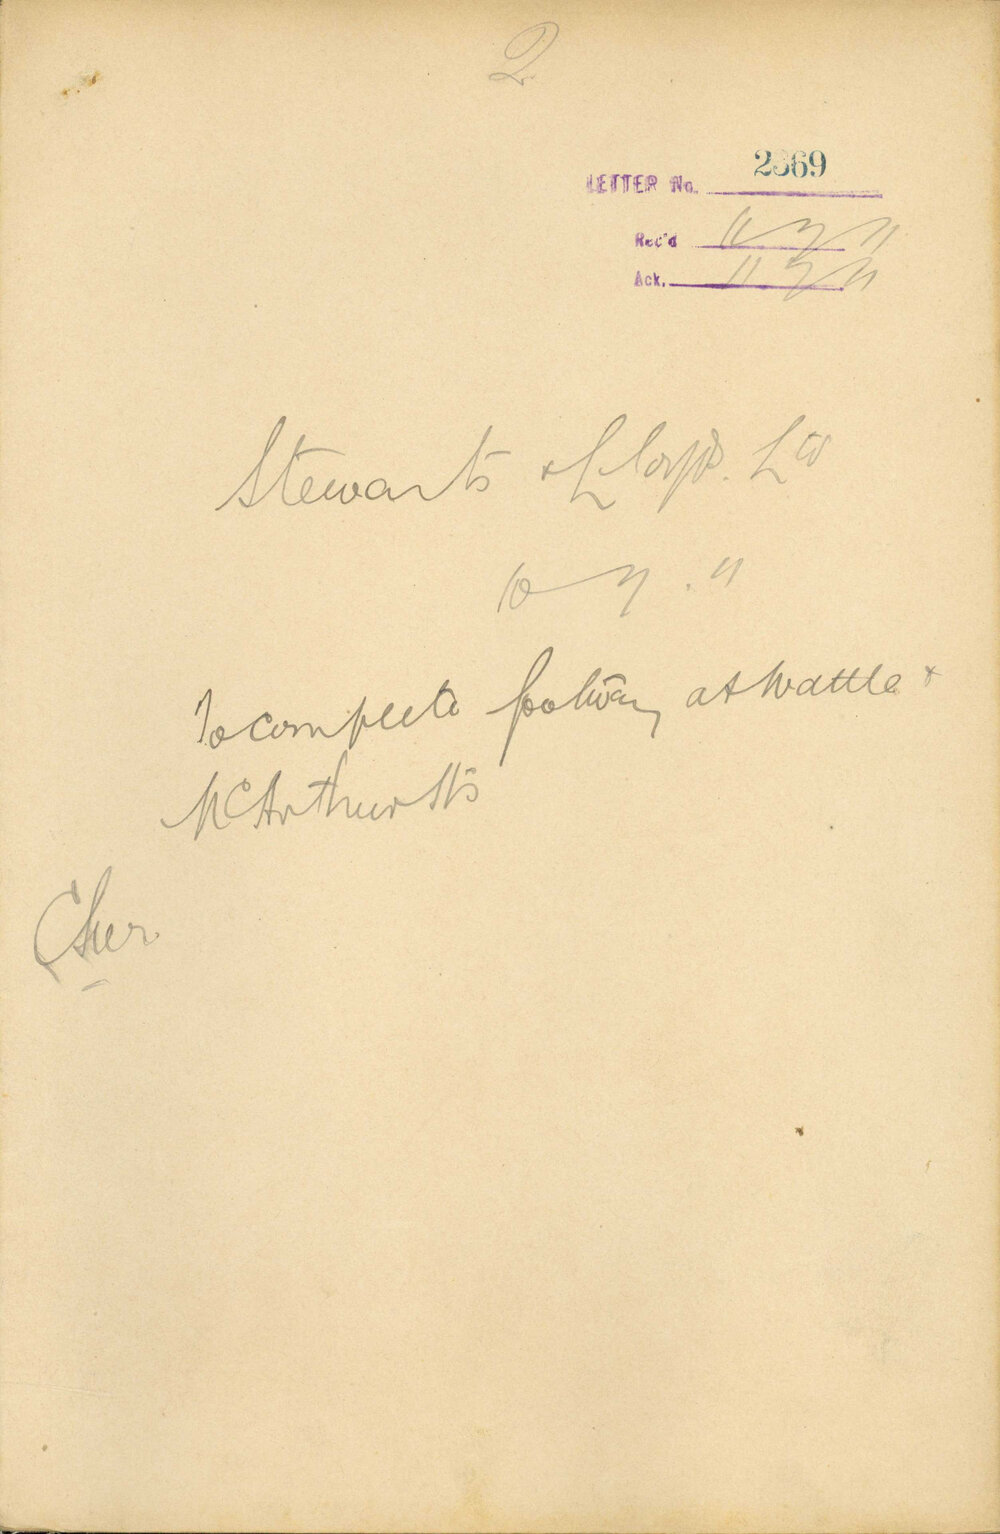 2
LETTER No. 2369
Rec'd 11 7 11
Ack. 11 7 11
Stewarts & Lloyds. Ltd
10 7. 11
To complete footway at Wattle &
McArthur Sts